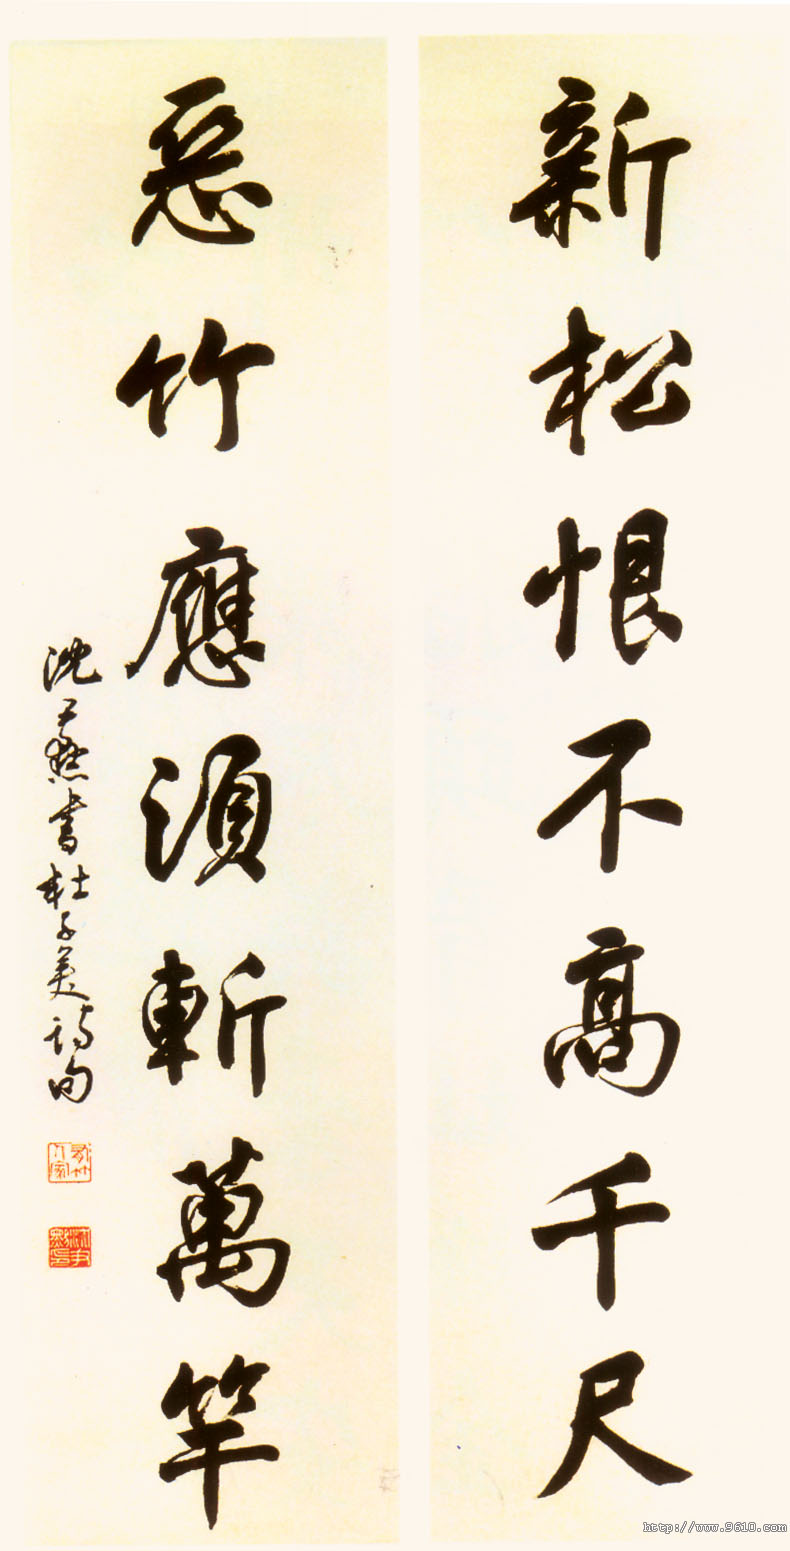 新松恨不高千尺
惡竹應須斬萬竿
沈尹默書杜子美詩句
http://www.9610.com